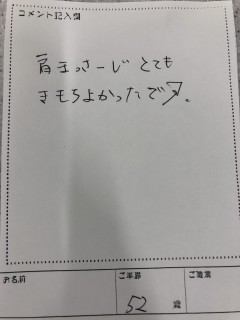 コメント記入欄
肩まっさーじ とても
きもちよかったでス。
お名前
ご年齢
ご職業
52 歳